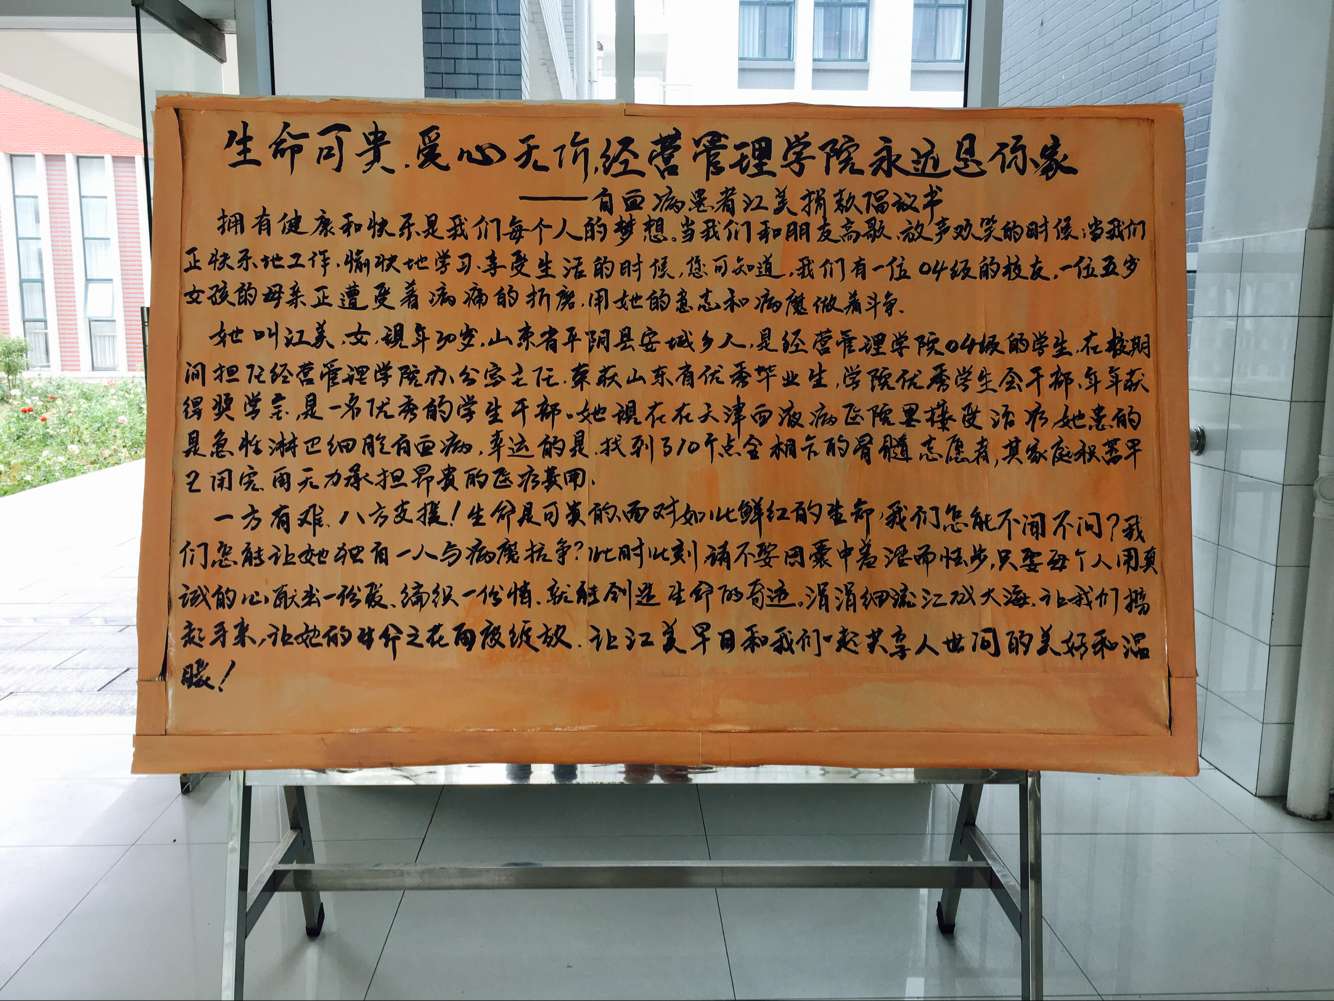 生命可贵.爱心无价,经营管理学院永远是你家
——白血病患者江美捐款倡议书
拥有健康和快乐是我们每个人的梦想.当我们和朋友高歌.放声欢笑的时候,当我们
正快乐地工作.愉快地学习.享受生活的时候,您可知道,我们有一位04级的校友,一位五岁
女孩的母亲正遭受着病痛的折磨.用她的意志和病魔做着斗争.
她叫江美.女,现年30岁.山东省平阴县安城乡人,是经营管理学院04级的学生.在校期
间担任经营管理学院办公室主任.荣获山东省优秀毕业生,学院优秀学生会干部.年年获
得奖学金.是一名优秀的学生干部。她现在在天津血液病医院里接受治疗.她患的
是急性淋巴细胞白血病,幸运的是.找到了10个点全相合的骨髓志愿者,其家庭积蓄早
已用完.再无力承担昂贵的医疗费用.
一方有难.八方支援!生命是可贵的.面对如此鲜红的生命,我们怎能不闻不问?我
们怎能让她独自一人与病魔抗争?此时此刻请不要因囊中羞涩而怯步,只要每个人用真
诚的心献出一份爱.编织一份情.就能创造生命的奇迹。涓涓细流江成大海.让我们携
起手来,让她的生命之花再度绽放.让江美早日和我们一起共享人世间的美好和温
暖!